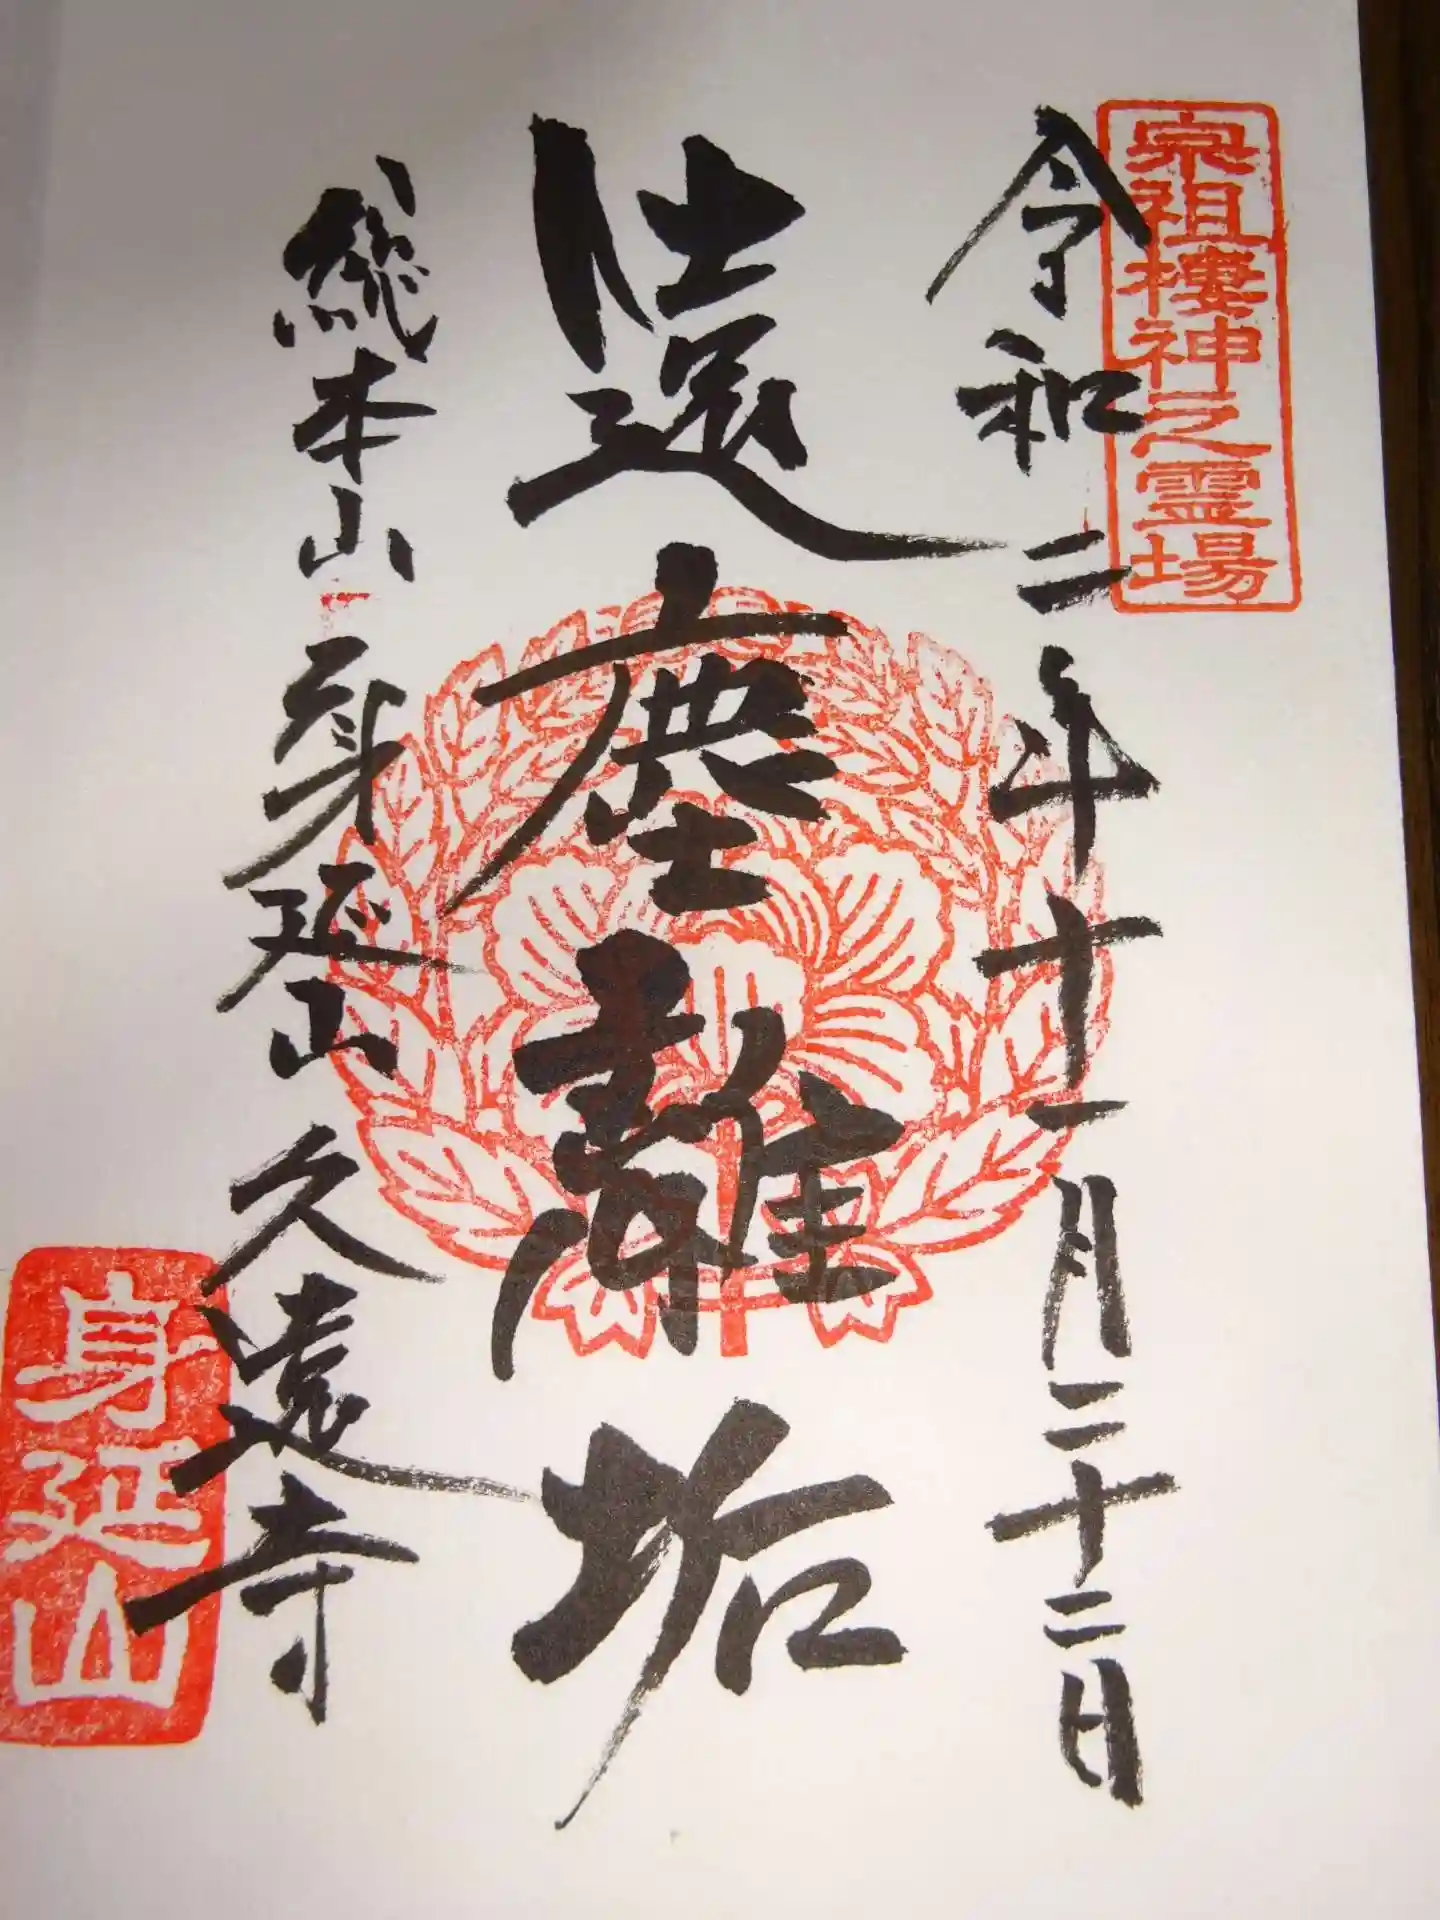 宗祖棲神之霊場
令和二年十一月二十二日
遠塵離垢
総本山身延山久遠寺
身延山